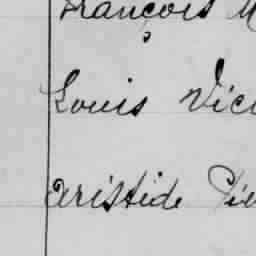 François M
Louis Vic
Aristide Pie